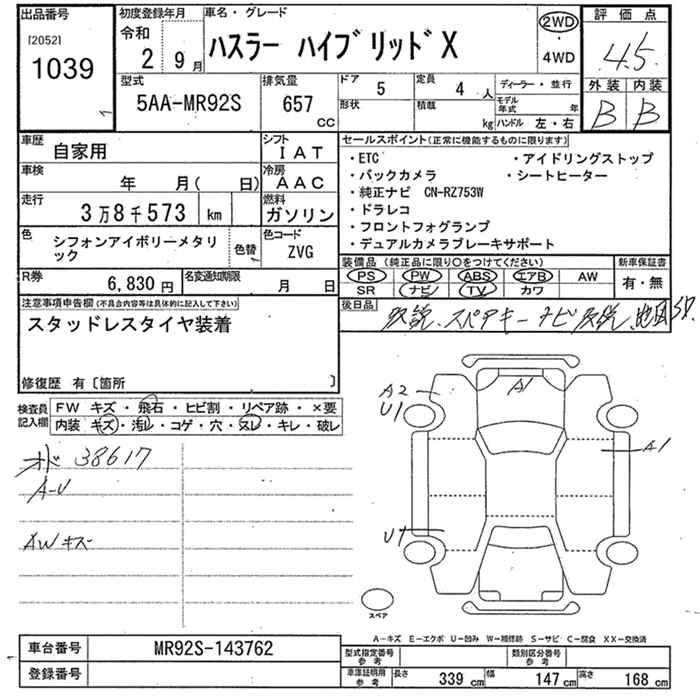 出品番号
[2052]
1039
初度登録年月
令和
2 9月
車名・グレード
ハスラー ハイブリッドX
2WD
4WD
評価点
4.5
外装 内装
B B
型式
5AA-MR92S
排気量
657 CC
ドア
5
形状
定員
4 人
積載
kg
ディーラー・並行
モデル年式 年
ハンドル 左・右
車歴
自家用
シフト
IAT
車検
年 月( 日)
冷房
AAC
走行
3万8千573 km
燃料
ガソリン
色
シフォンアイボリーメタリ
ック
色替
色コード
ZVG
R券
6,830 円
名変通知期限
月 日
セールスポイント(正常に機能するものに限ります)
・ETC
・アイドリングストップ
・バックカメラ
・シートヒーター
・純正ナビ CN-RZ753W
・ドラレコ
・フロントフォグランプ
・デュアルカメラブレーキサポート
装備品(純正品に限り○をつけてください)
PS PW ABS エアB AW
SR ナビ TV カワ
新車保証書
有・無
後日品
取説、スペアキー ナビ取説、地図SD
注意事項申告欄(不具合内容等は具体的に記入して下さい)
スタッドレスタイヤ装着
修復歴 有〔箇所 〕
検査員
記入欄
FW キズ・飛石・ヒビ割・リペア跡・×要
内装 キズ・汚レ・コゲ・穴・スレ・キレ・破レ
オド 38617
A-U
AWキズ
A2
U1
A1
A1
U1
スペア
A-キズ E-エクボ U-凹み W-補修跡 S-サビ C-腐食 XX-交換済
車台番号
MR92S-143762
登録番号
型式指定番号
参考
類別区分番号
参考
車庫証明用
参考
長さ 339 cm
幅 147 cm
高さ 168 cm